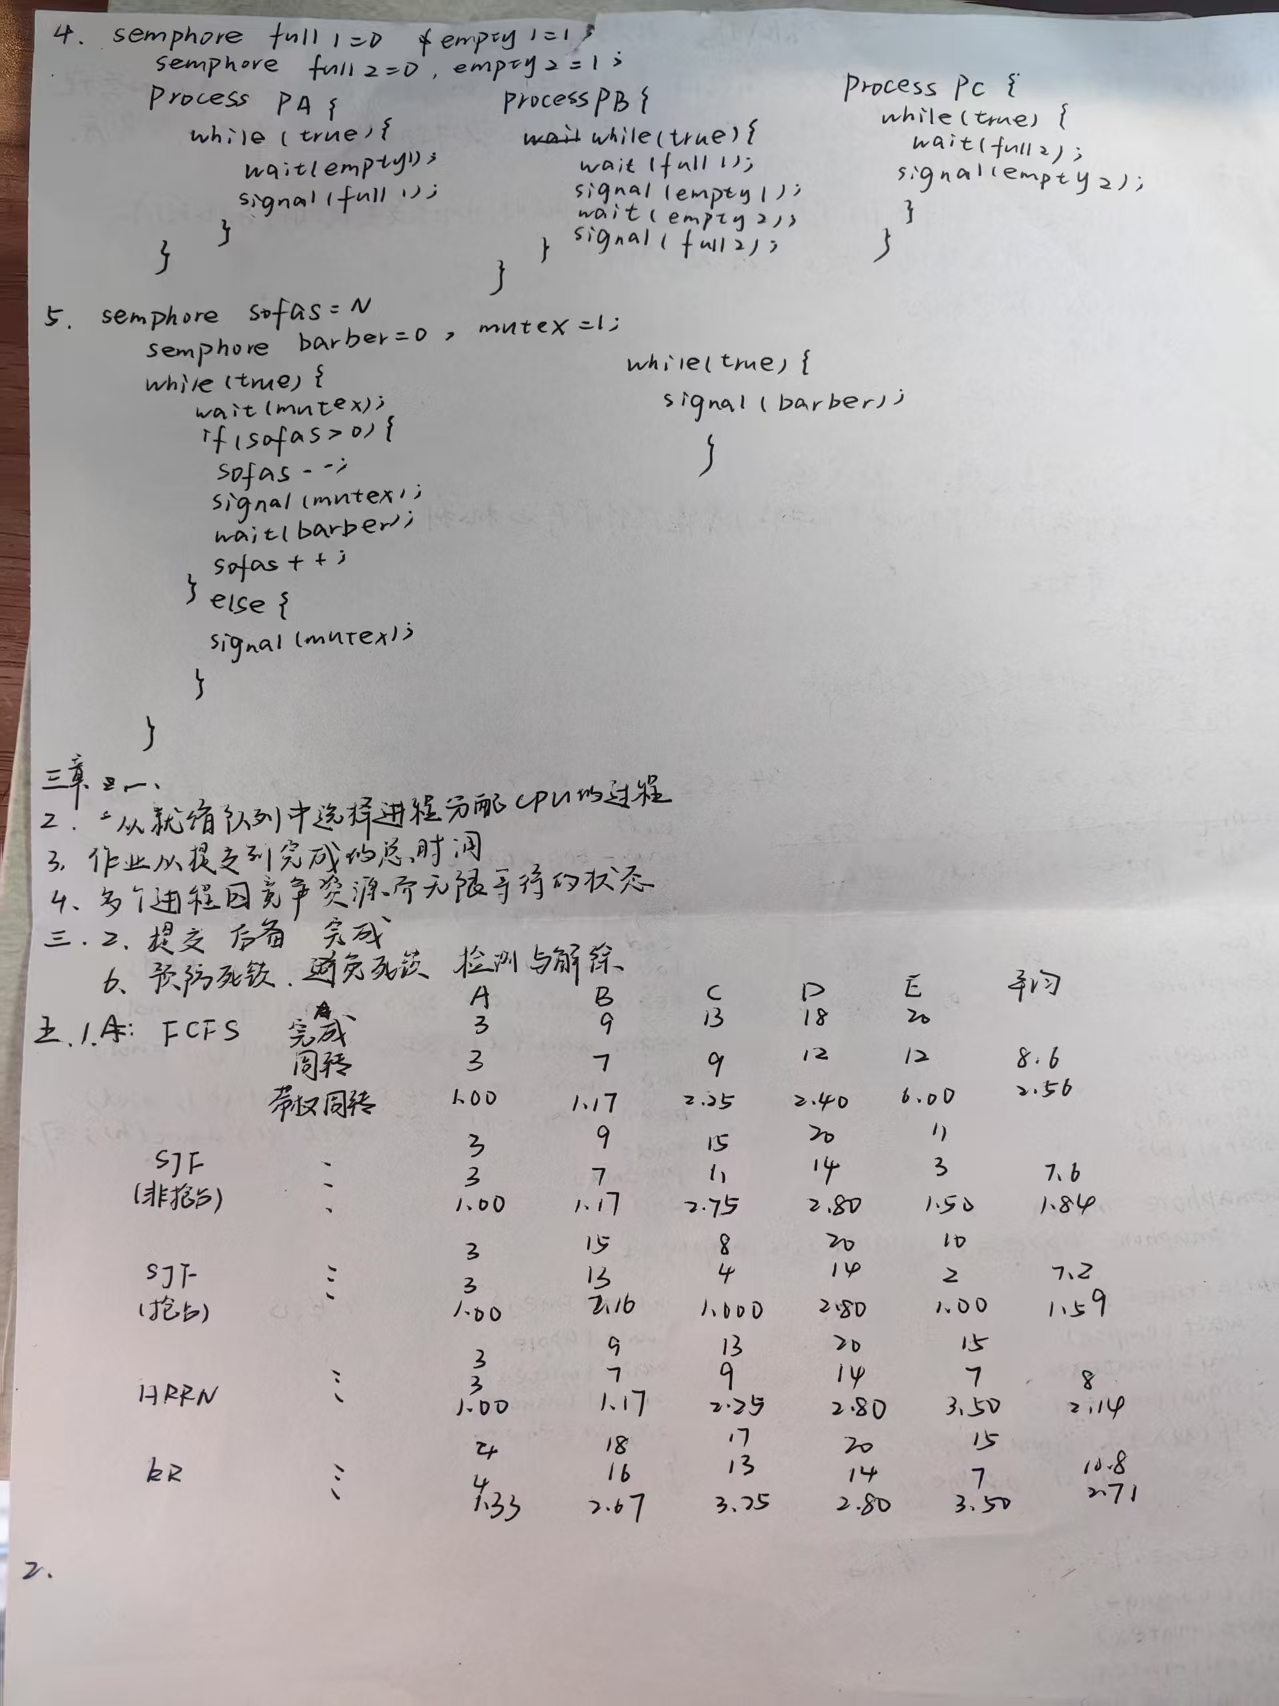 4. semphore full1=0 empty1=1;
semphore full2=0, empty2=1;
Process PA {
while(true){
wait(empty1);
signal(full1);
}
}
process PB {
while(true){
wait(full1);
signal(empty1);
wait(empty2);
signal(full2);
}
}
Process PC {
while(true){
wait(full2);
signal(empty2);
}
}
5. semphore sofas=N
semphore barber=0, mutex=1;
while(true){
wait(mutex);
if(sofas>0){
sofas--;
signal(mutex);
wait(barber);
sofas++;
}
else{
signal(mutex);
}
}
while(true){
signal(barber);
}
三章 一、
2. 从就绪队列中选择进程分配CPU的过程
3. 作业从提交到完成的总时间
4、多个进程因竞争资源而无限等待的状态
三.2. 提交 后备 完成
6、预防死锁、避免死锁 检测与解除
A B C D E 平均
五.1. FCFS 完成 3 9 13 18 20
周转 3 7 9 12 12 8.6
带权周转 1.00 1.17 2.25 2.40 6.00 2.56
SJF 3 9 15 20 11
(非抢占) 3 7 11 14 3 7.6
1.00 1.17 2.75 2.80 1.50 1.84
SJF 3 15 8 20 10
(抢占) 3 13 4 14 2 7.2
1.00 2.16 1.000 2.80 1.00 1.59
HRRN 3 9 13 20 15
3 7 9 14 7 8
1.00 1.17 2.25 2.80 3.50 2.14
RR 4 18 17 20 15
4 16 13 14 7 10.8
1.33 2.67 3.25 2.80 3.50 2.71
2.